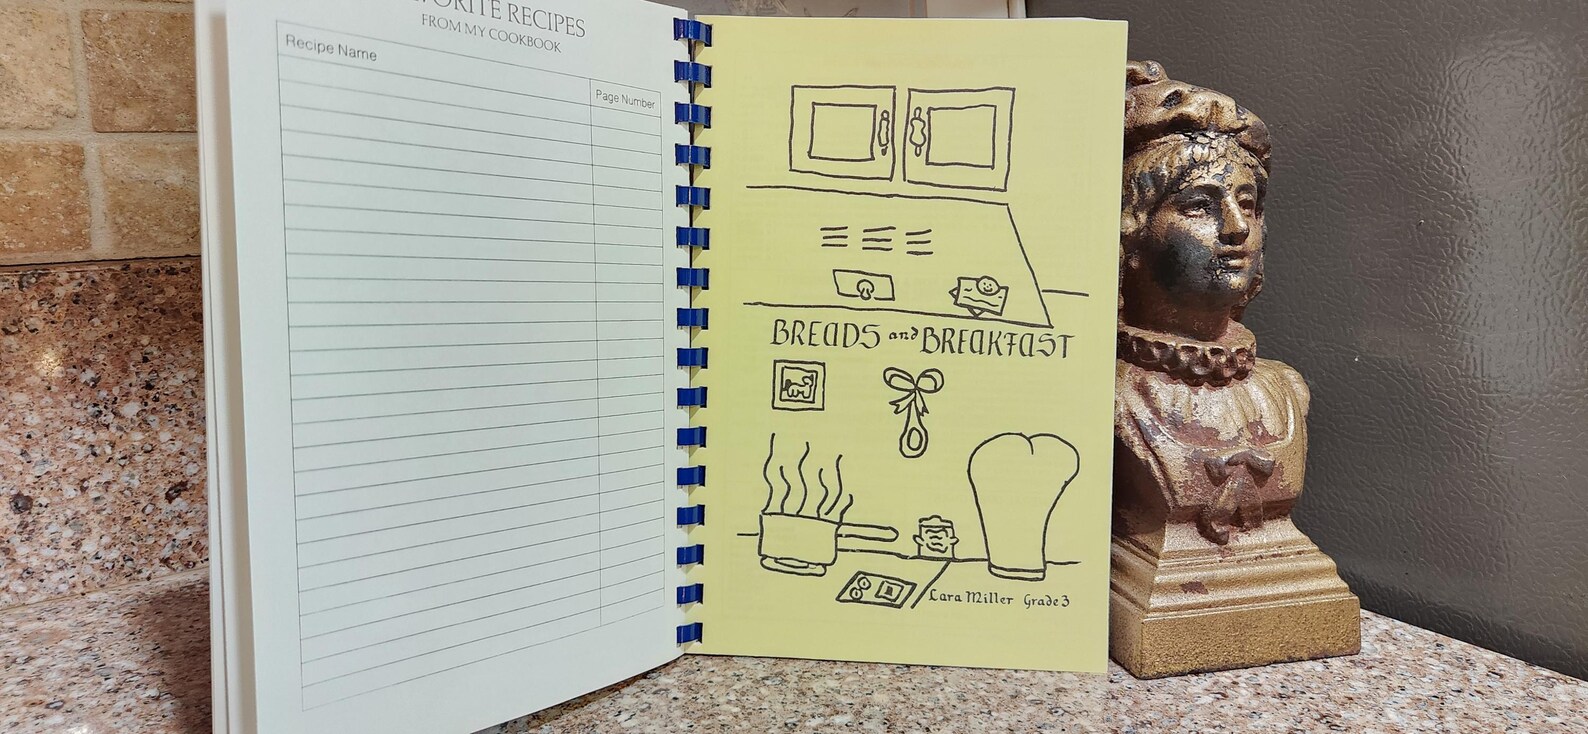 RECIPES
FROM MY COOKBOOK
Recipe Name
Page Number
BREADS and BREAKFAST
Cara Miller Grade 3